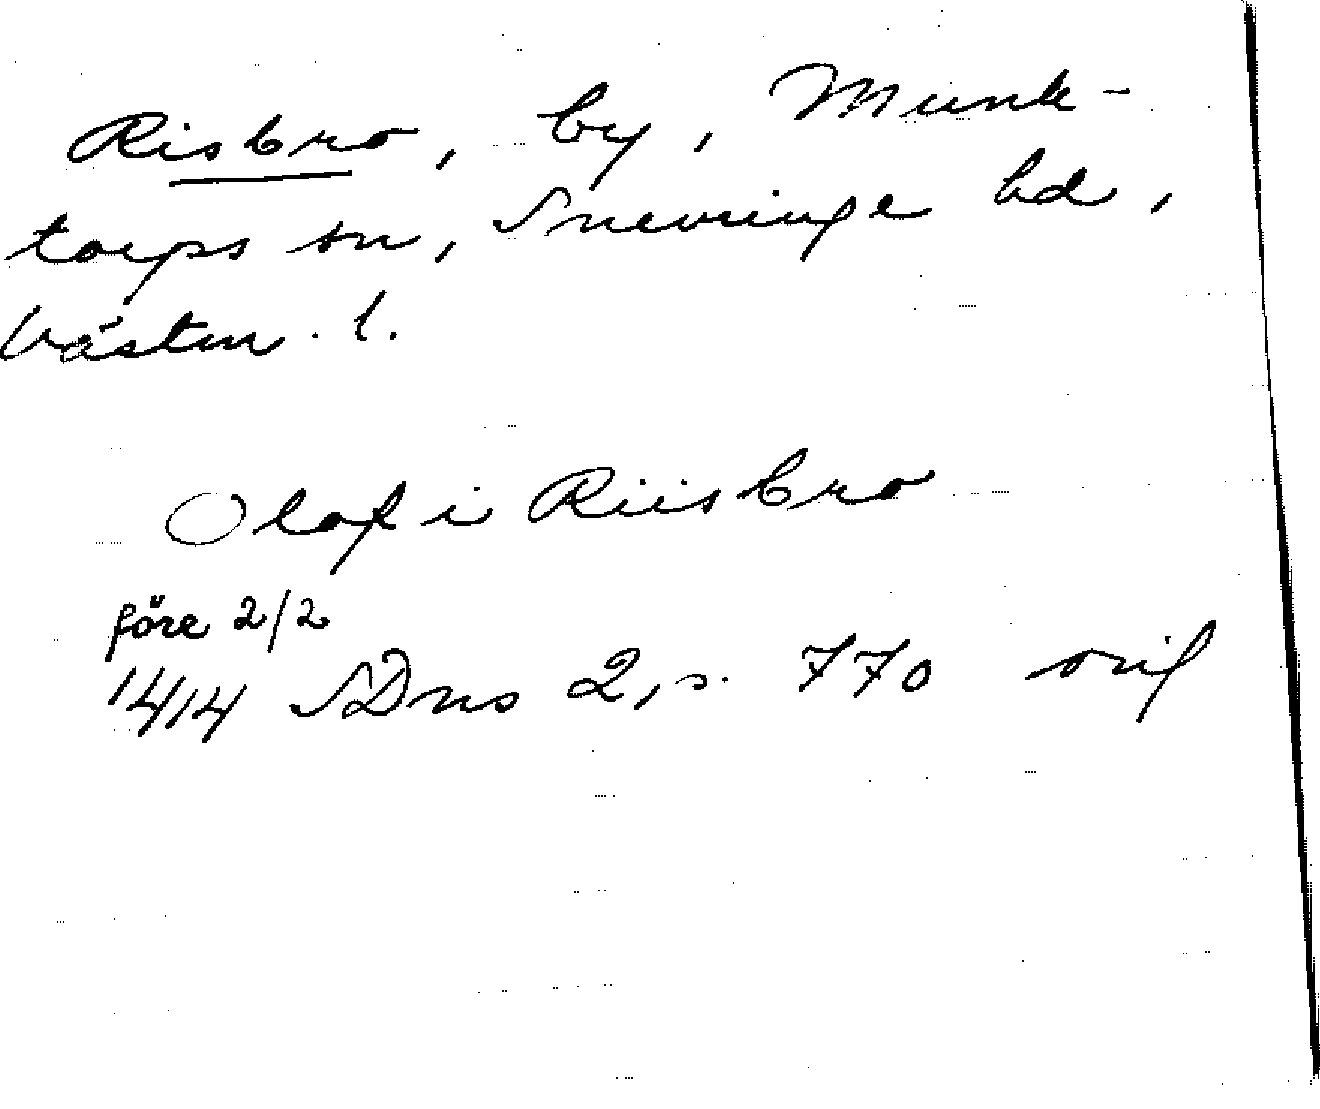 Risbro, by, Munk-
torps sn, Snevringe hd,
Västm. l.
Olaf i Riisbro
före 2/2
1414 SDns 2, s. 770 orig